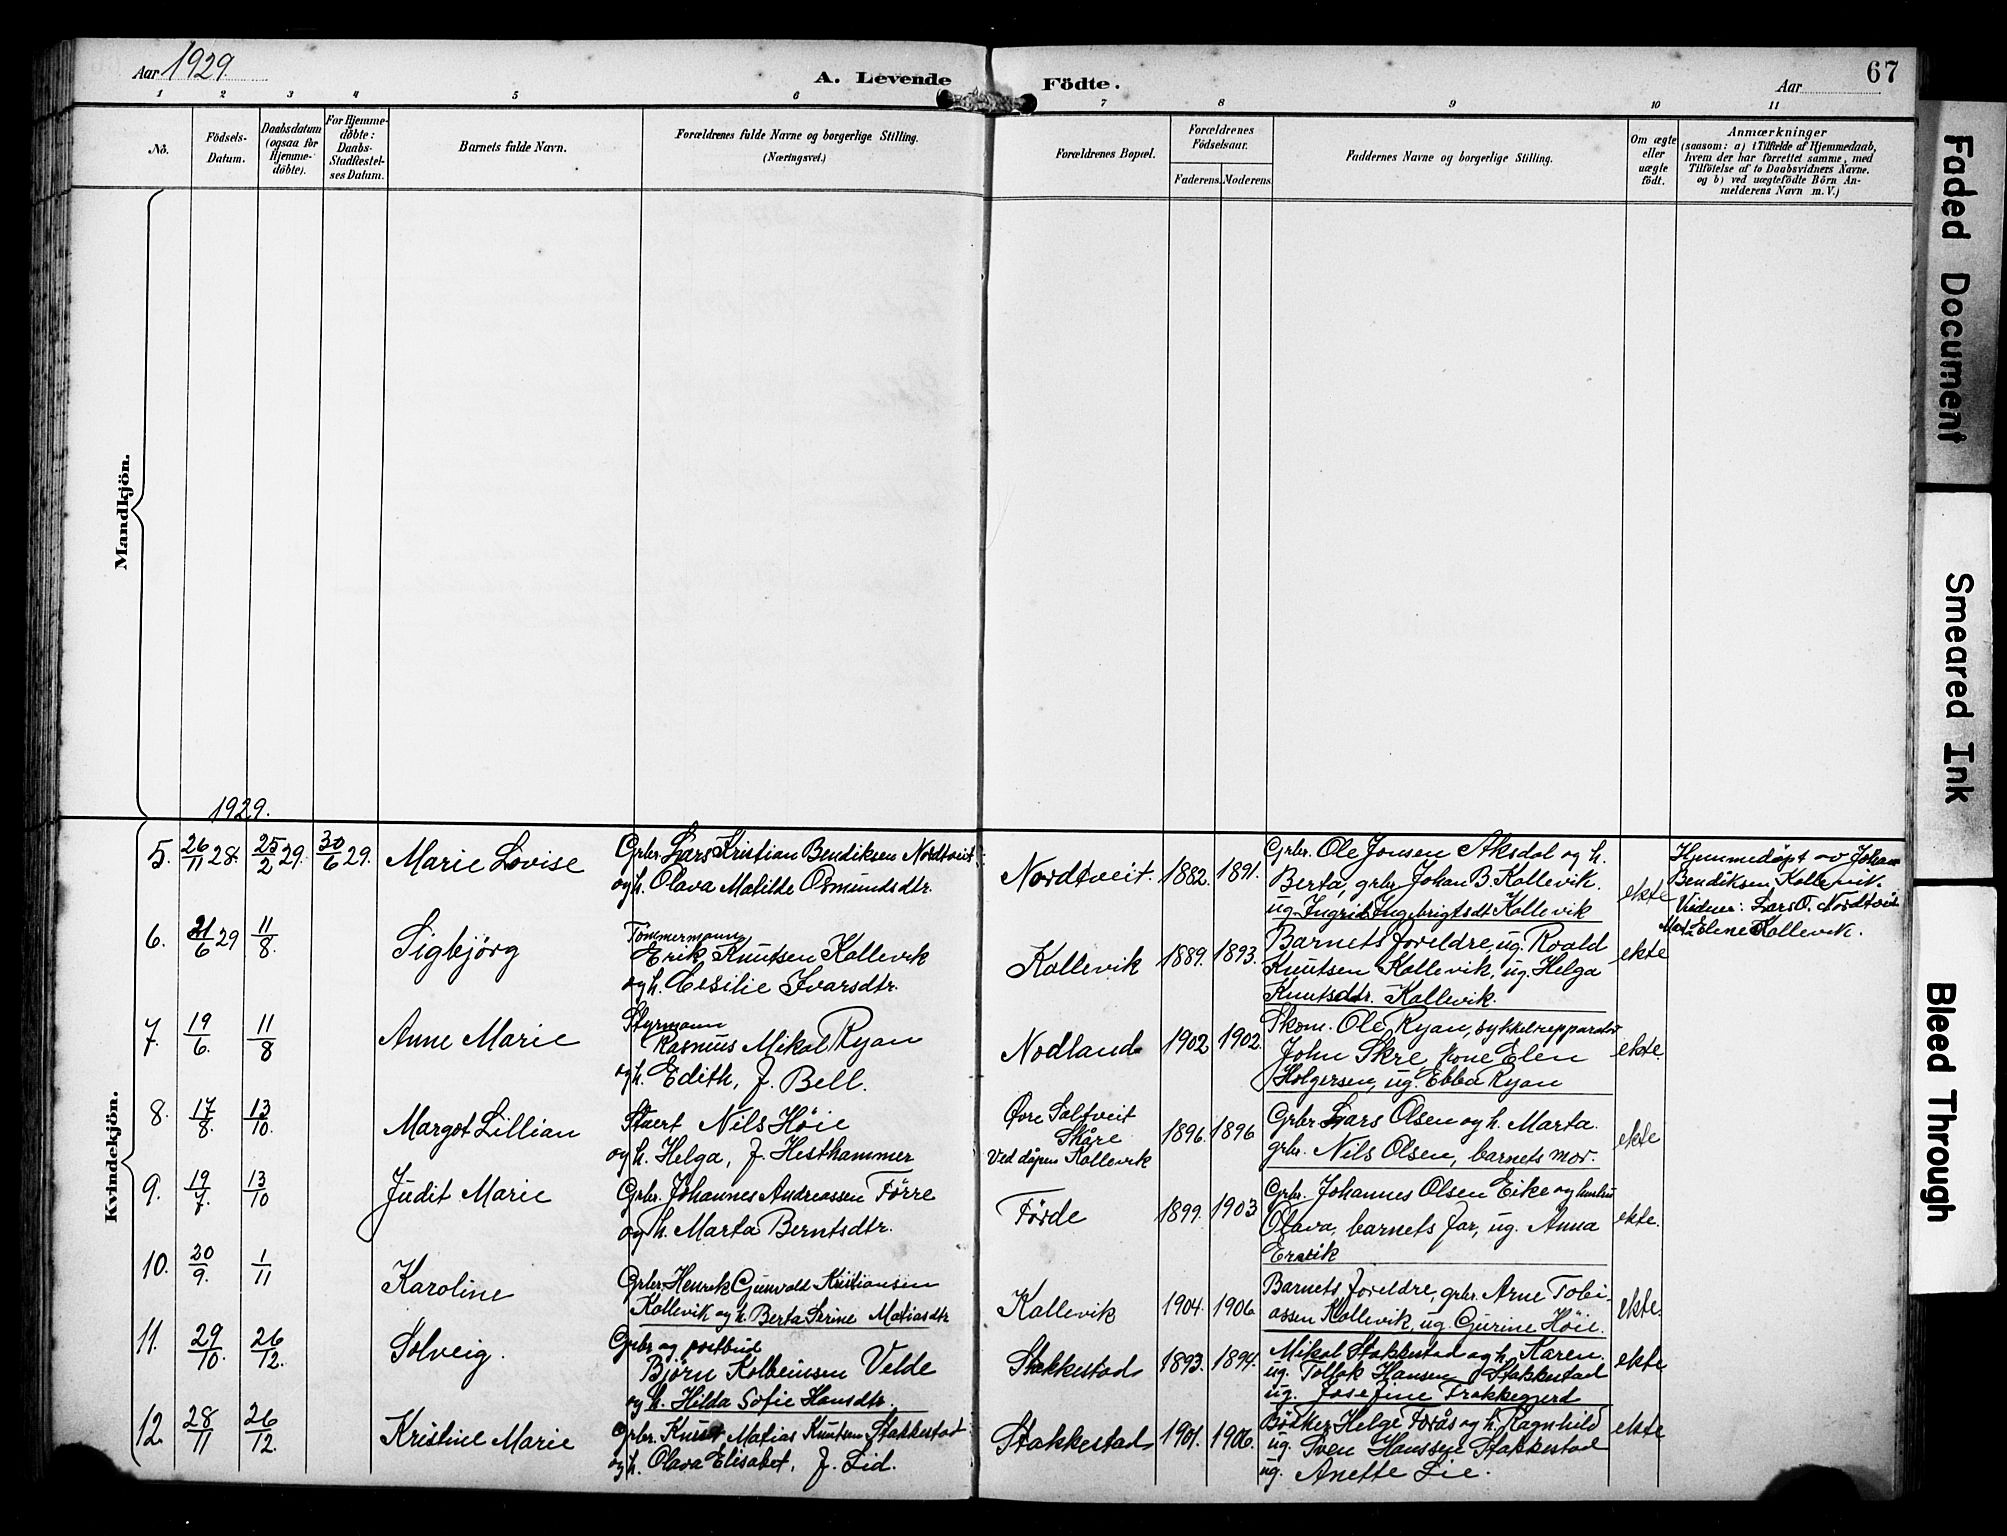 Aar 1929.
A. Levende Födte.
Aar
67
1 2 3 4 5 6 7 8 9 10 11
No.
Födsels-
Datum.
Daabsdatum
(ogsaa for
Hjemme-
döbte).
For Hjemme-
döbte:
Daabs-
Stadfæstel-
ses Datum.
Barnets fulde Navn.
Forældrenes fulde Navne og borgerlige Stilling.
(Næringsvei.)
Forældrenes Bopæl.
Forældrenes
Födselsaar.
Faderens. Moderens.
Faddernes Navne og borgerlige Stilling.
Om ægte
eller
uægte
födt.
Anmærkninger
(saasom: a) i Tilfælde af Hjemmedaab,
hvem der har forrettet samme, med
Tilföielse af to Daabsvidners Navne.
og b) ved uægtefödte Börn An-
melderens Navn m. V.)
Mandkjön.
Kvindekjön.
1929.
5. 26/11 28. 25/2 29. 30/6 29. Marie Lovise
Grbr. Lars Kristian Bendiksen Nordtveit
og h. Olava Matilde Osmundsdtr.
Nordtveit. 1882. 1891.
Grbr. Ole Jonsen Aksdal og h.
Berta, grbr. Johan B. Kallevik.
ug. Ingrid Ingebrigtsdt. Kallevik
ekte
Hjemmedöpt av Johan
Bendiksen Kallevik.
Vidner: Lars O. Nordtveit
Elene Kallevik.
6. 21/6 29 11/8. Sigbjörg
Tömmermann
Erik Knutsen Kallevik
og h. Cesilie Ivarsdtr.
Kallevik 1889. 1893.
Barnets foreldre, ug. Roald
Knutsen Kallevik, ug. Helga
Knutsdtr. Kallevik.
ekte
7. 19/6. 11/8 Anne Marie
Styrmann
Rasmus Mikal Ryan
og h. Edith, f. Bell.
Nodland 1902 1902
Skom. Ole Ryan, sykkelreparatör
John Skre, kone Elen
Holgersen, ug. Ebba Ryan
ekte.
8. 17/8. 13/10. Margot Lillian
Stuert Nils Höie
og h. Helga, f. Hesthammer
Øvre Saltveit
Skåre
Ved dåpen Kallevik
1896. 1896
Grbr. Lars Olsen og h. Marta.
grbr. Nils Olsen, barnets mor.
ekte
9. 19/7. 13/10 Judit Marie
Grbr. Johannes Andreassen Förre
og h. Marta Berntsdtr.
Förde 1899. 1903
Grbr. Johannes Olsen Eike og hustru
Olava, barnets far, ug. Anna
ekte.
10. 20/9. 1/11 Karoline
Grbr. Henrik Gunvald Kristiansen
Kallevik og h. Berta Serine Matiasdtr
Kallevik 1904. 1906
Barnets foreldre, grbr. Arne Tobi-
assen Kallevik, ug. Gurine Höie.
ekte.
11. 29/10. 26/12. Solveig.
Grbr og postbud
Björn Kolbeinsen Velde
og h. Hilda Sofie Hansdtr.
Stakkestad 1893. 1894.
Mikal Stakkestad og h. Karen.
ug. Tollak Hansen Stakkestad
ug. Josefine Frakkagjerd
ekte
12. 28/11 26/12. Kristine Marie
Grbr. Knut Matias Knutsen Stakkestad
og h. Olava Elisabet, f. Lid.
Stakkestad 1901. 1906.
Bödker Helge Förås og h. Ragnhild
ug. Sven Hanssen Stakkestad
ug. Anette Lie.
ekte
Faded Document
Smeared Ink
Bleed Through